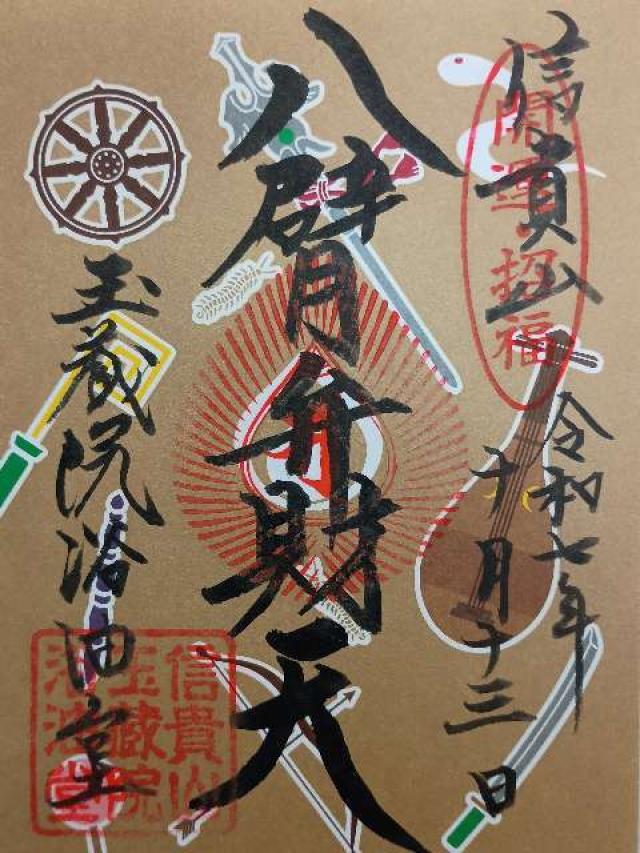 信貴山
開運・招福
令和七年
十月十三日
八臂弁財天
玉蔵院浴油堂
信貴山
玉蔵院
浴油堂